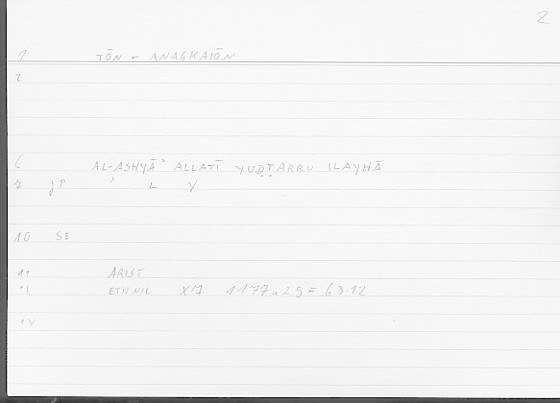 2
1 TŌN - ANAGKAIŌN
2
6 AL-ASHYĀʾ ALLATĪ YUḌṬARRU ILAYHĀ
7 jP ʾ L Y
10 SE
11 ARIST
12 ETH NIC X7 1177a29 = 63.12